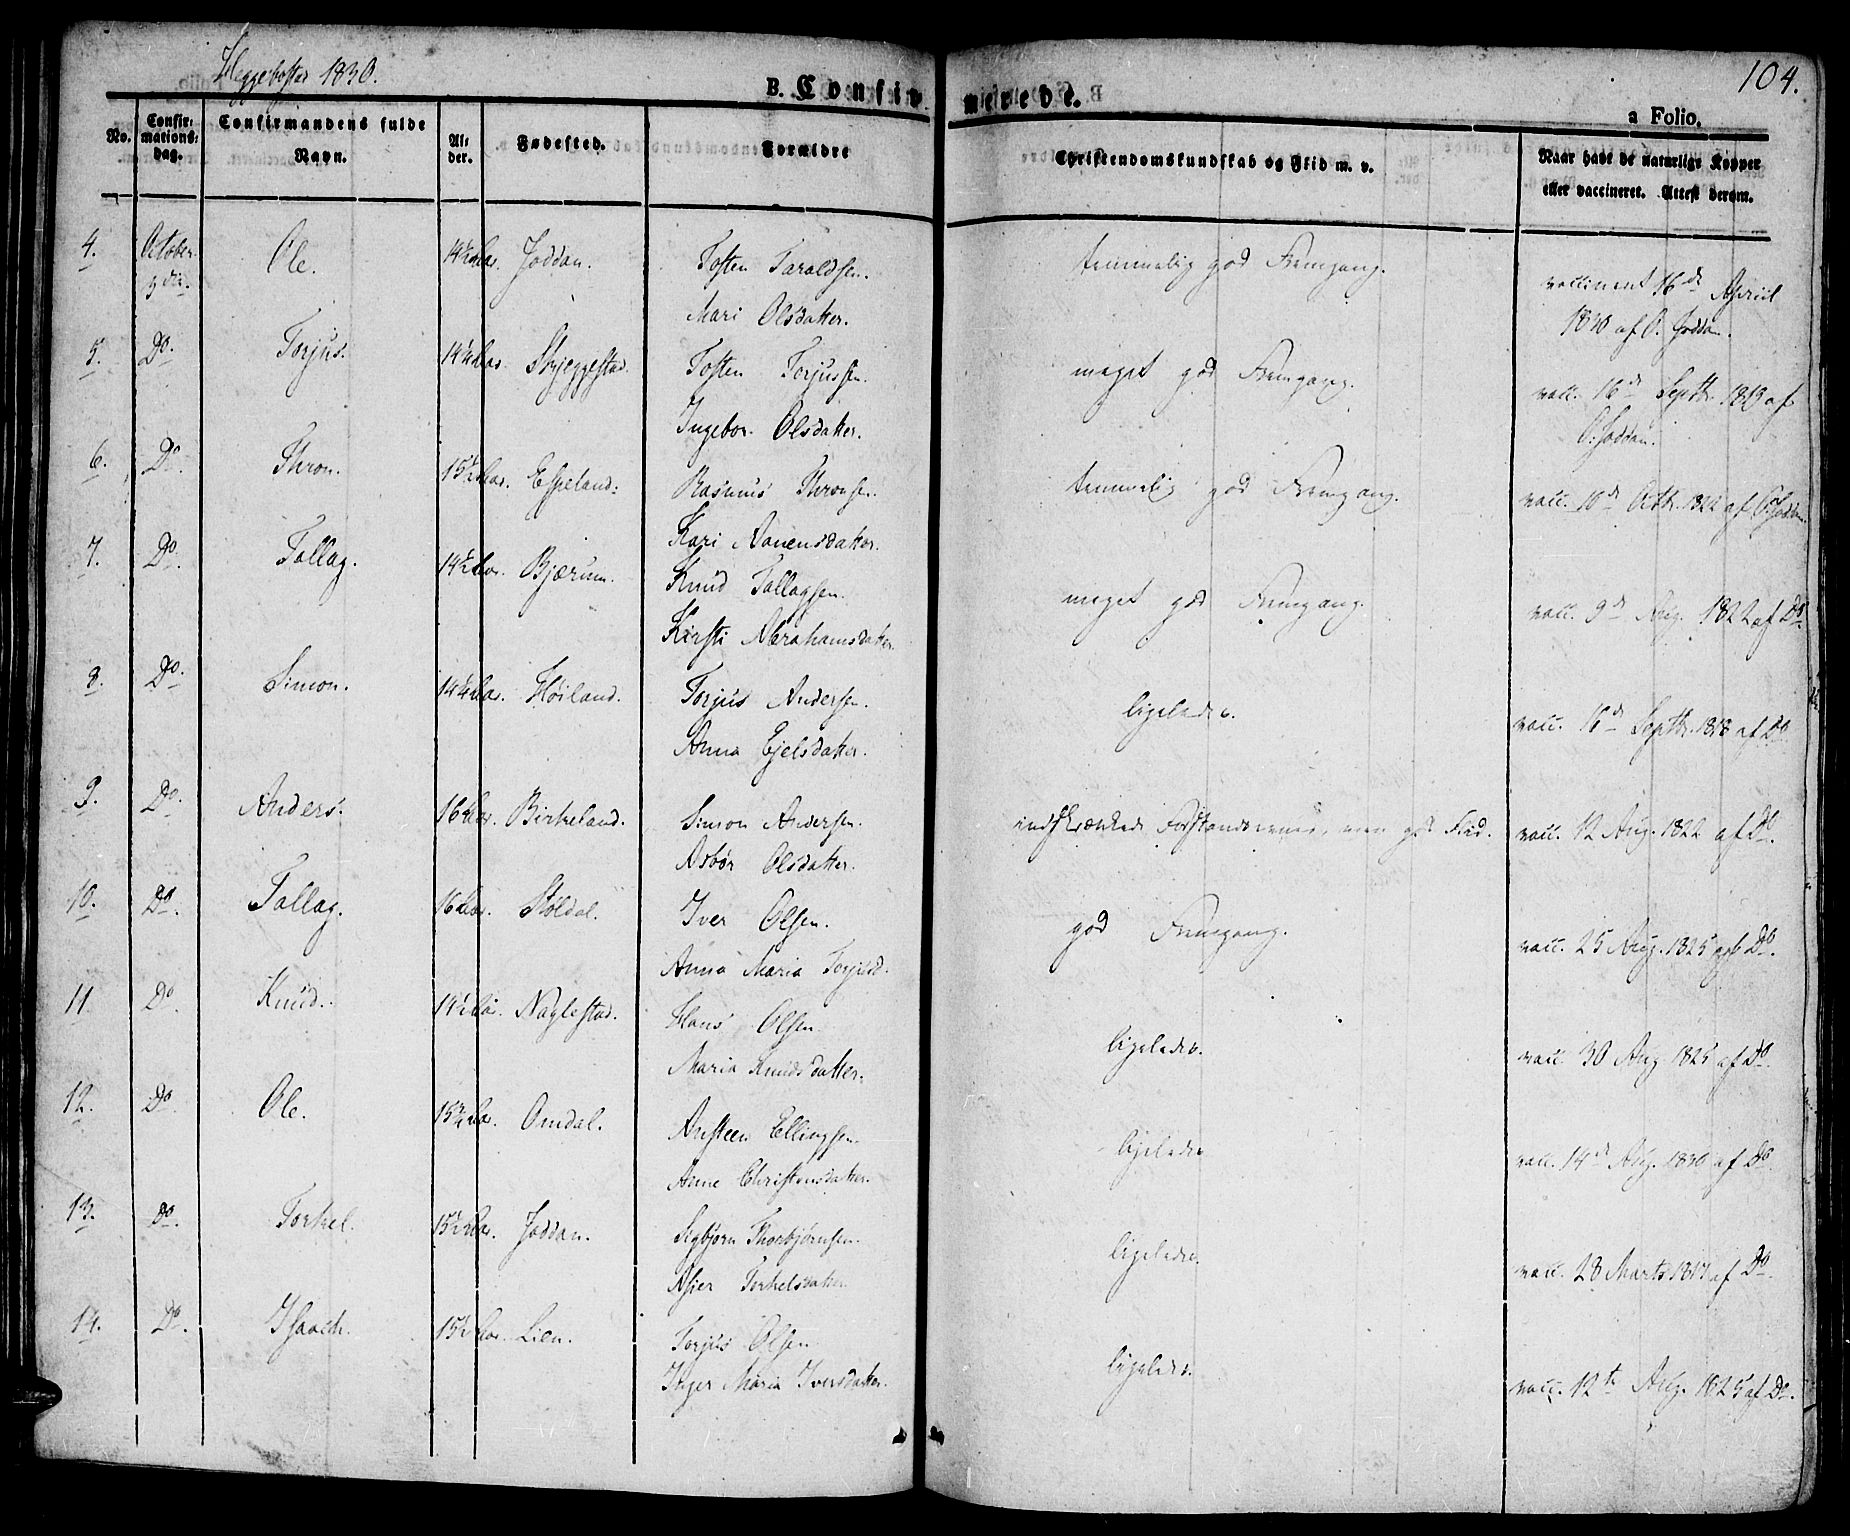 Heggebostad 1830.
B. Confir merede.
104.
a Folio.
No. Confirmations-dag. Confirmandens fulde Navn. Alder. Fødested. Forældre Christendomskundskab og Flid m. v. Naar havt de naturlige Kopper eller vaccineret. Attest derom.
4. October 3die. Ole. 14½ Aar. Joddan. Tosten Taraldsen. temmelig god Fremgang. vaccineret 16de April
Mari Olsdatter. 1830 af O. Joddan.
5. Do. Torjus. 14¼ Aar. Skjeggestad. Tosten Torjussen. meget god Fremgang. vacc. 16de Septbr. 1819 af
Ingebor Olsdatter. O. Joddan.
6. Do. Thron. 15½ Aar. Espeland. Rasmus Thronsen. temmelig god Fremgang. vacc. 10de Octbr. 1822 af O. Joddan.
Kari Aanensdatter.
7. Do. Tallag. 14½ Aar. Bjærum. Knud Tallagsen. meget god Fremgang. vacc. 9de Aug. 1822 af Do.
Kirsti Abrahamsdatter.
8. Do. Simon. 14¼ Aar. Høiland. Torjus Andersen. ligeledes. vacc. 16de Septbr. 1818 af Do.
Anna Ejelsdatter.
9. Do. Anders. 16 Aar. Birkeland. Simon Andersen. indskrænkede Forstandsevner, men god Flid. vacc. 12 Aug. 1822 af Do.
Asbør Olsdatter.
10. Do. Tallag. 16 Aar. Støldal. Iver Olsen. god Fremgang. vacc. 25 Aug. 1825 af Do.
Anna Maria Torjusd.
11. Do. Knud. 14½ Aar. Naglestad. Hans Olsen. ligeledes. vacc. 30 Aug 1825 af Do.
Maria Knudsdatter.
12. Do. Ole. 15¾ Aar. Omdal. Ansteen Ellingsen. ligeledes vacc. 14de Aug. 1830 af Do.
Anne Christensdatter.
13. Do. Torkel. 15½ Aar. Joddan. Sigbjørn Thorbjørnsen. ligeledes. vacc. 28 Marts 1817 af Do.
Asier Torkelsdatter
14. Do. Isaach. 15½ Aar. Lien. Torjus Olsen ligeledes. vacc. 12te Aug. 1825 af Do.
Inger Maria Iversdatter.